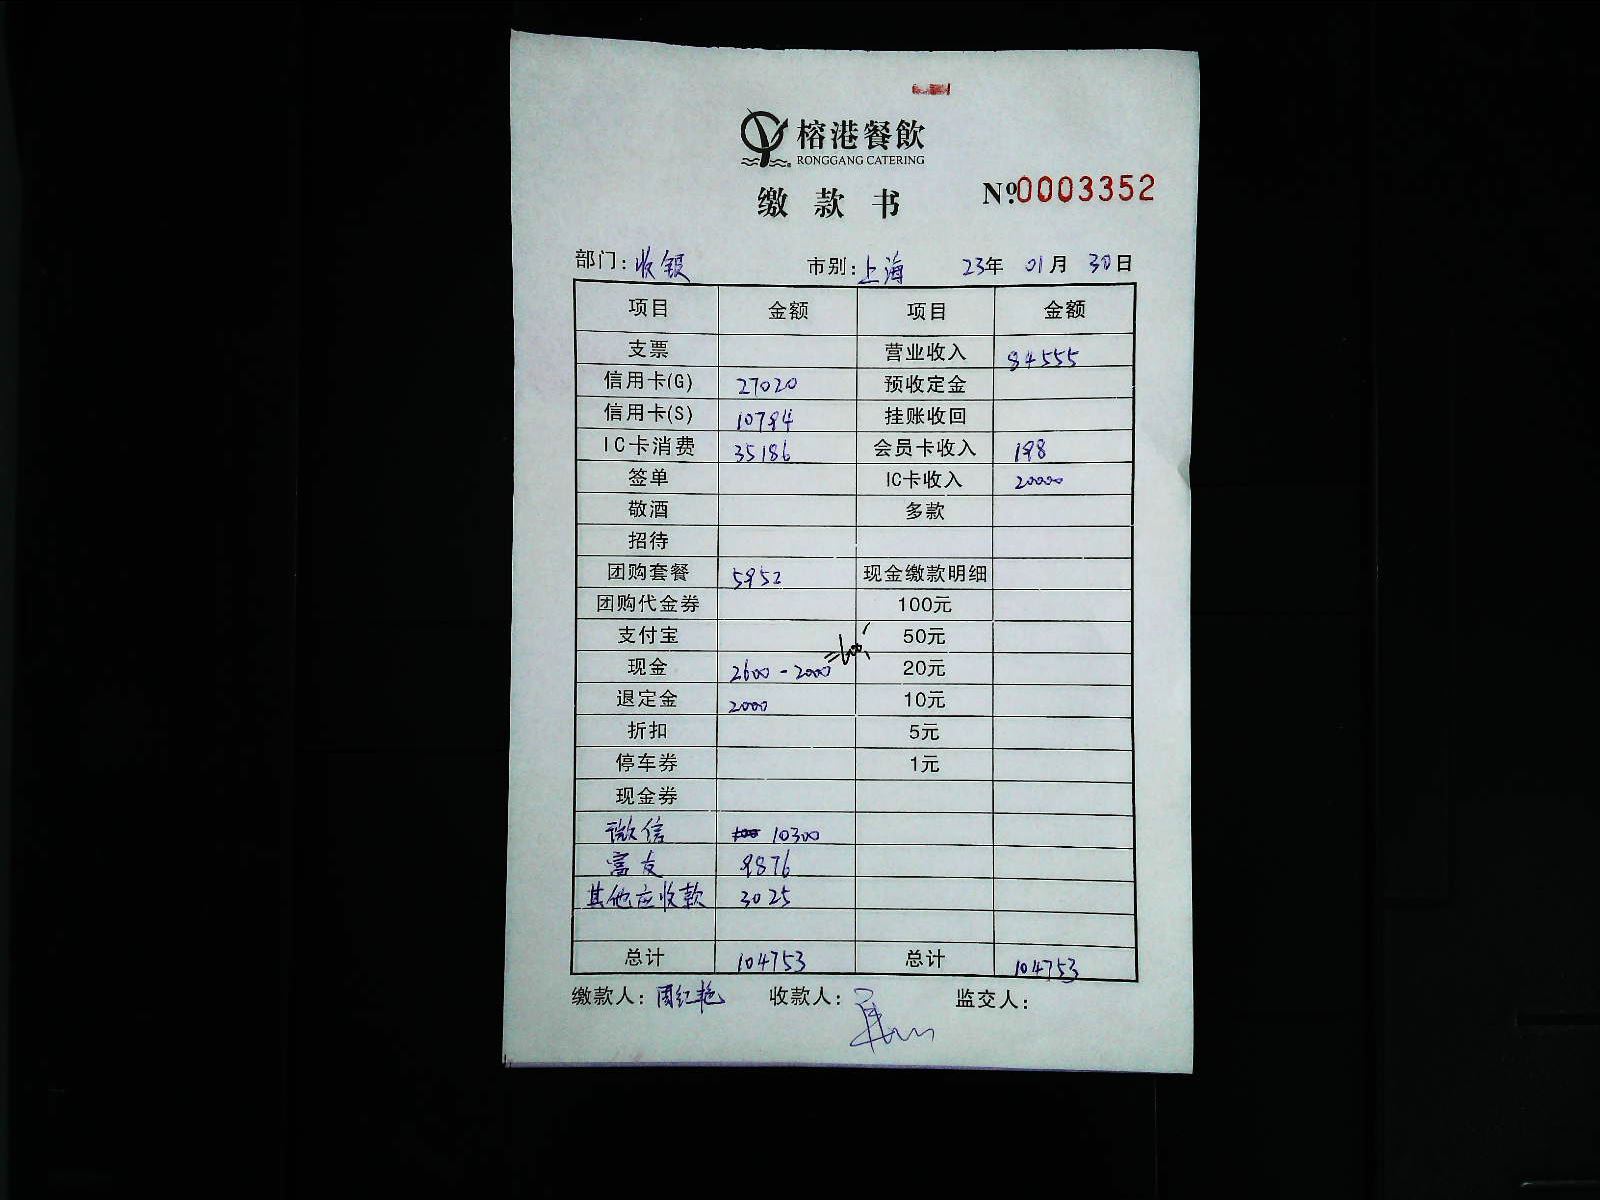 榕港餐飲
RONGGANG CATERING
缴款书 №:0003352
部门:收银 市别:上海 23年 01月 30日
项目 金额 项目 金额
支票 营业收入 84555
信用卡(G) 27020 预收定金
信用卡(S) 10794 挂账收回
IC卡消费 35186 会员卡收入 198
签单 IC卡收入 20000
敬酒 多款
招待
团购套餐 5952 现金缴款明细
团购代金券 100元
支付宝 50元
现金 2600-2000=600 20元
退定金 2000 10元
折扣 5元
停车券 1元
现金券
微信 10300
富友 9876
其他应收款 3025
总计 104753 总计 104753
缴款人:周红艳 收款人: 监交人: